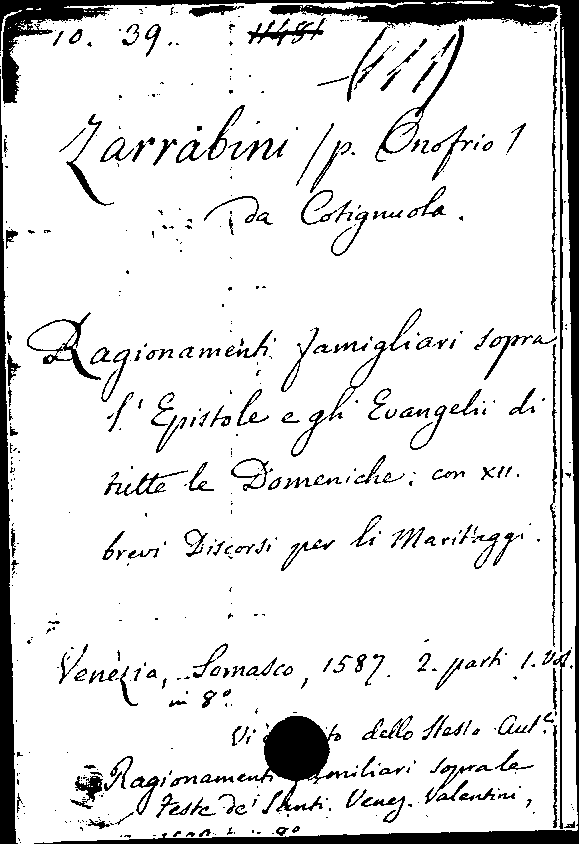 10. 39.
(111)
Zarrabini /p. Onofrio/
da Cotignuola.
Ragionamenti famigliari sopra
l'Epistole e gli Evangelii di
tutte le Domeniche; con XII.
brevi Discorsi per li Maritaggi.
Venezia, Somasco, 1587. 2. parti 1. Vol.
in 8º.
Vi dello stesso Aut.e
Ragionamenti familiari sopra le
Feste de' Santi. Venez. Valentini,